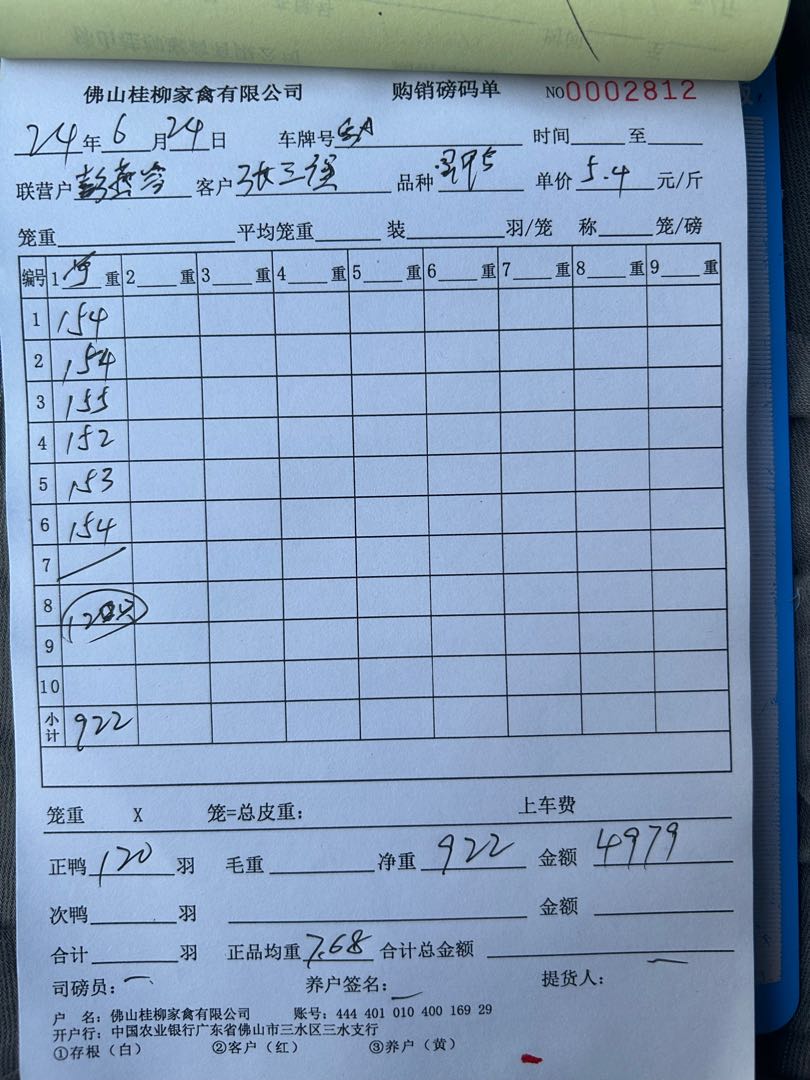 佛山桂柳家禽有限公司 购销磅码单 NO0002812
24年6月24日 车牌号 时间 至
联营户 彭燕 客户 张三 品种 单价 5.4 元/斤
笼重 平均笼重 装 羽/笼 称 笼/磅
编号 1 重 2 重 3 重 4 重 5 重 6 重 7 重 8 重 9 重
1 154
2 154
3 155
4 152
5 153
6 154
7
8 120只
9
10
小计 922
笼重 X 笼=总皮重: 上车费
正鸭 120 羽 毛重 净重 922 金额 4979
次鸭 羽 金额
合计 羽 正品均重 7.68 合计总金额
司磅员: 养户签名: 提货人:
户 名: 佛山桂柳家禽有限公司 账号: 444 401 010 400 169 29
开户行: 中国农业银行广东省佛山市三水区三水支行
①存根(白) ②客户(红) ③养户(黄)